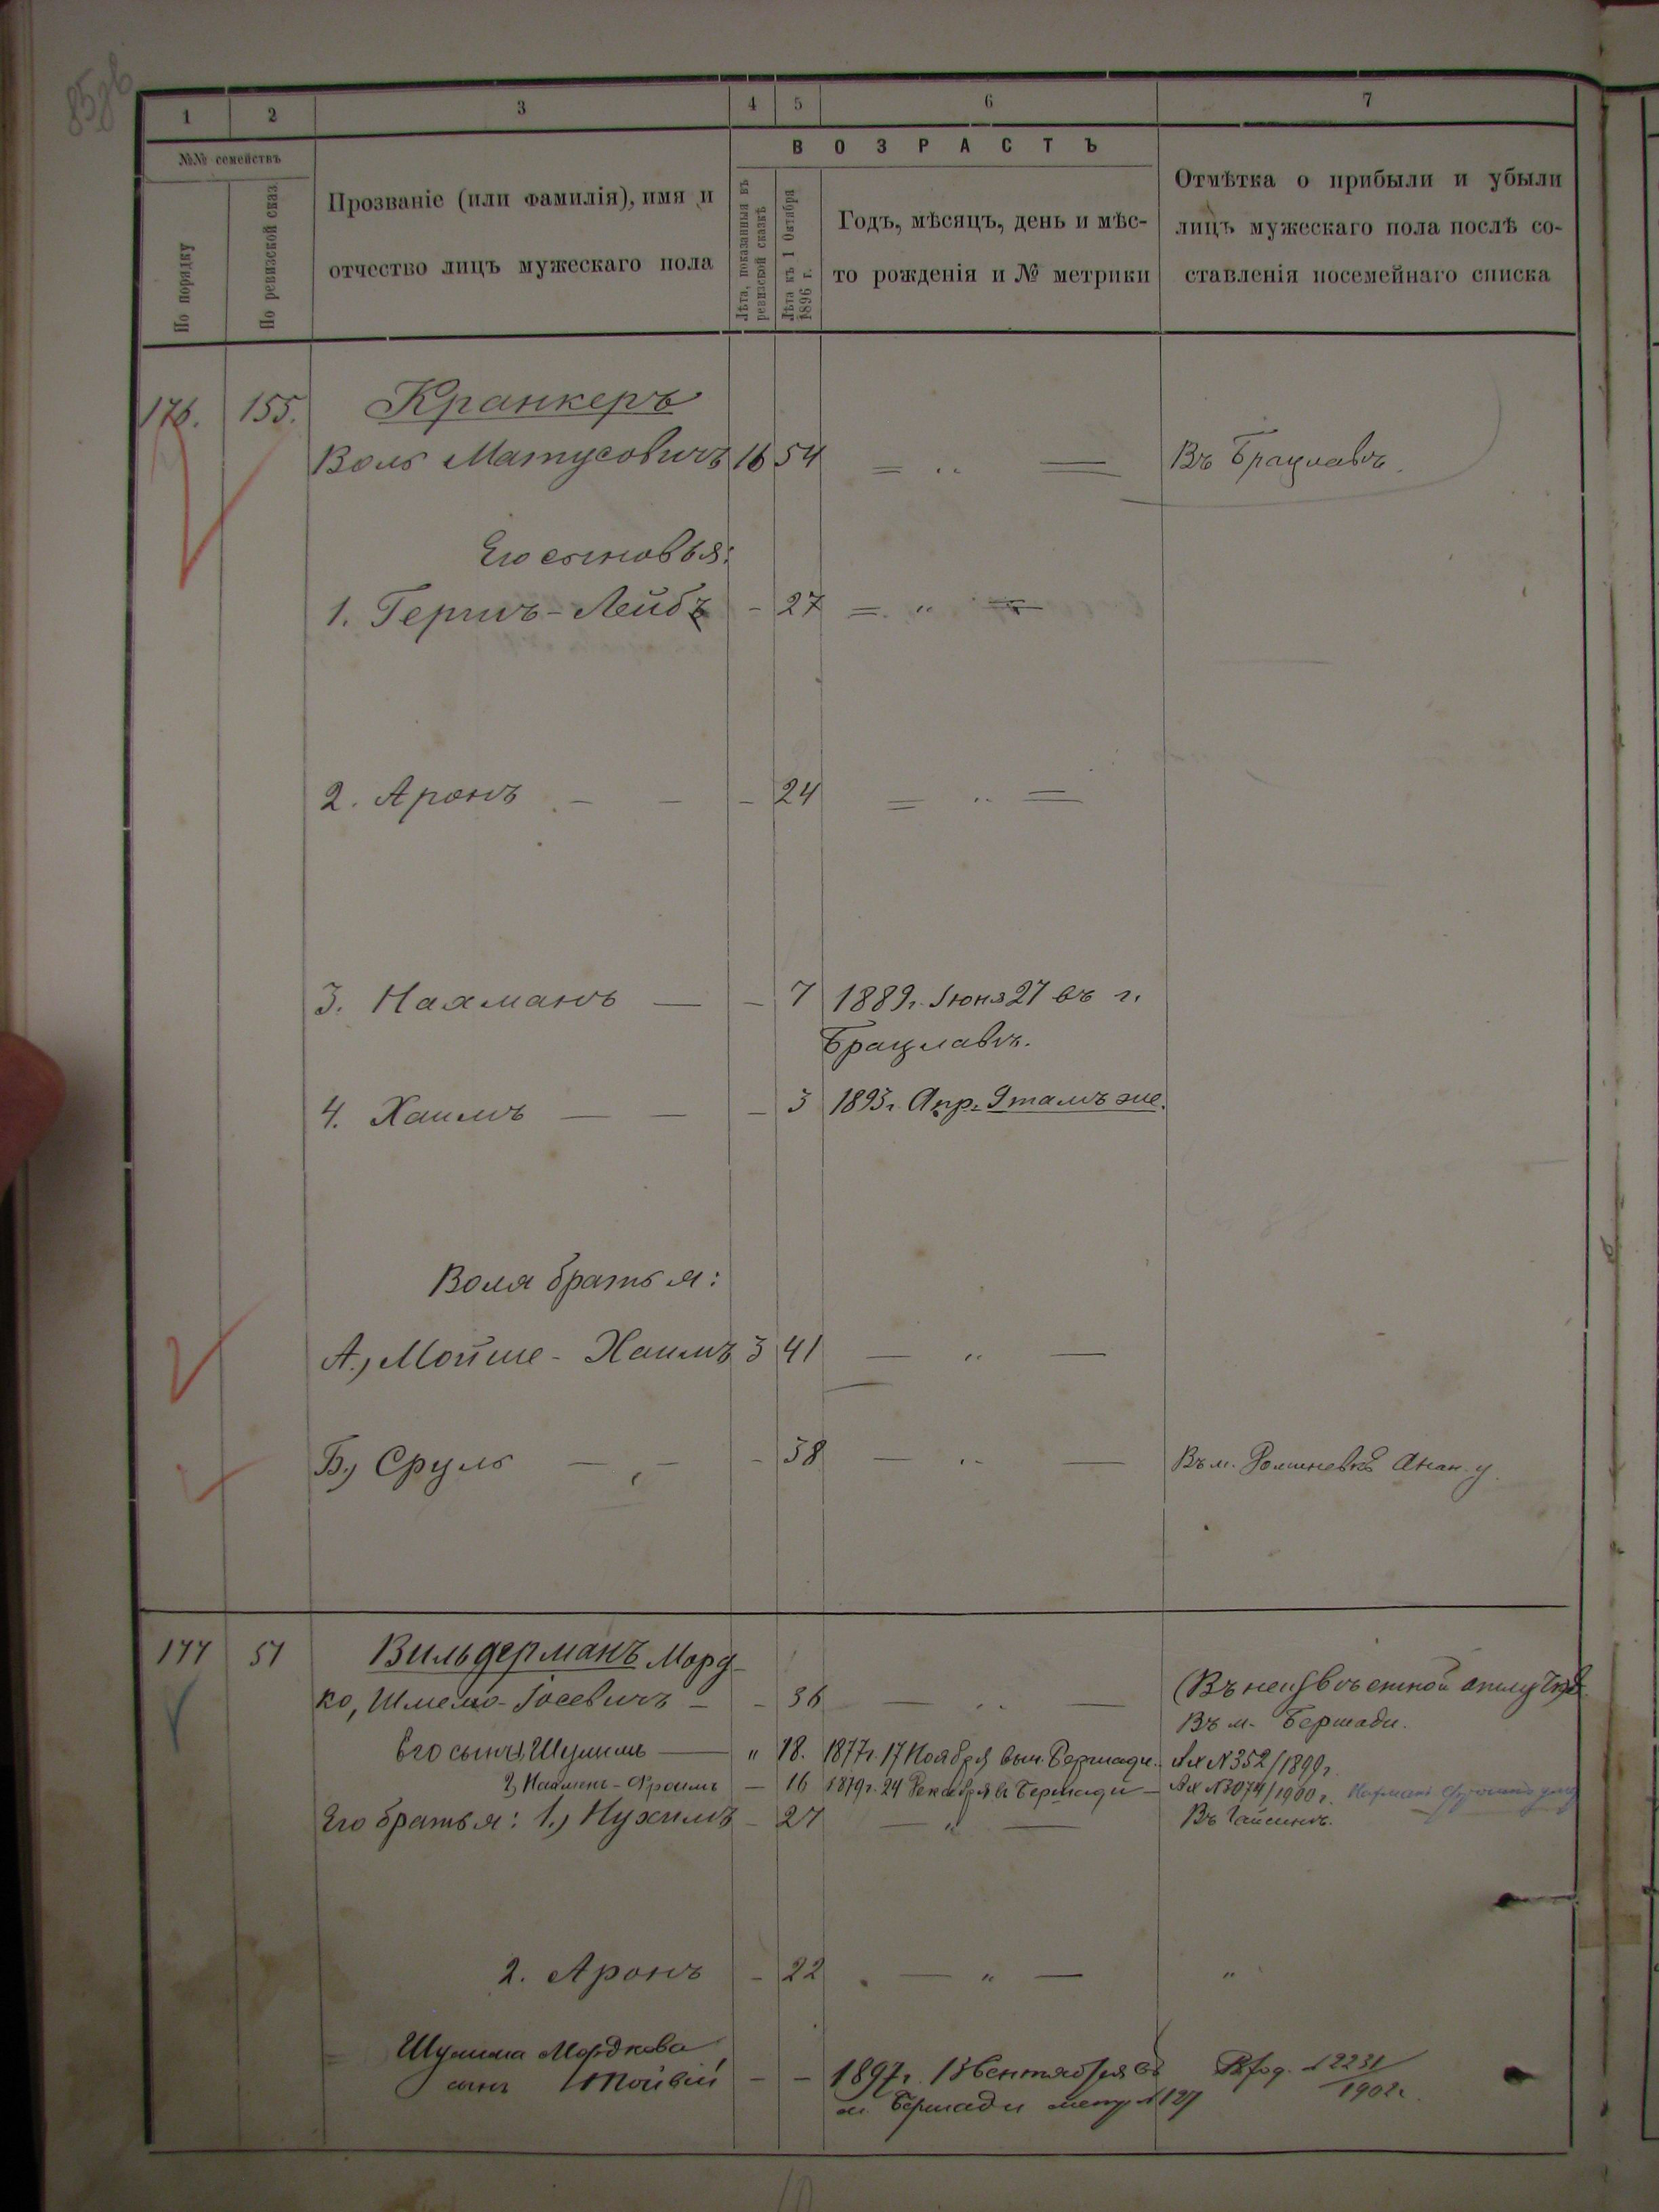 1 2 3 4 5 6 7
№№ семействъ
По порядку
По ревизской сказ.
Прозваніе (или фамилія), имя и
отчество лицъ мужескаго пола
ВОЗРАСТЪ
Лѣта, показанныя въ
ревизской сказкѣ
Лѣта къ 1 Октября
1896 г.
Годъ, мѣсяцъ, день и мѣс-
то рожденія и № метрики
Отмѣтка о прибыли и убыли
лицъ мужескаго пола послѣ со-
ставленія посемейнаго списка
176. 155. Кранкеръ
Воль Матусовичъ 16 54 = „ = Въ Брацлавѣ.
Его сыновья:
1. Гершъ-Лейбъ - 27 = „ =
2. Аронъ - - - 24 = „ =
3. Нахманъ — - 7 1889 г. Іюня 27 въ г.
Брацлавѣ.
4. Хаимъ — — - 3 1893 г. Апр. 9 тамъ же.
Воля братья:
А., Мойше-Хаимъ 3 41 — „ —
Б., Сруль — - - 38 — „ — Въ м. Анан. у.
177 51 Вильдерманъ Морд-
ко, Шмело-Іосевичъ - - 36 — „ — (Въ неизвѣстной отлучкѣ
Въ м. Бершади.
Его сынъ 1, Шулимъ — „ 18. 1877 г. 17 Ноября въ м. Бершади. №352/1899 г.
2, Нахманъ-Фроимъ — 16 1879 г. 24 Декабря въ Бершади — №3074/1900 г.
Его братья: 1., Нухимъ - 27 — „ — Въ Гайсинѣ.
2. Аронъ - 22 — „ — „
Шулима Мордкова
сынъ Тойвій - - 1897 г. Сентября въ №2231/1902 г.
м. Бершади №127